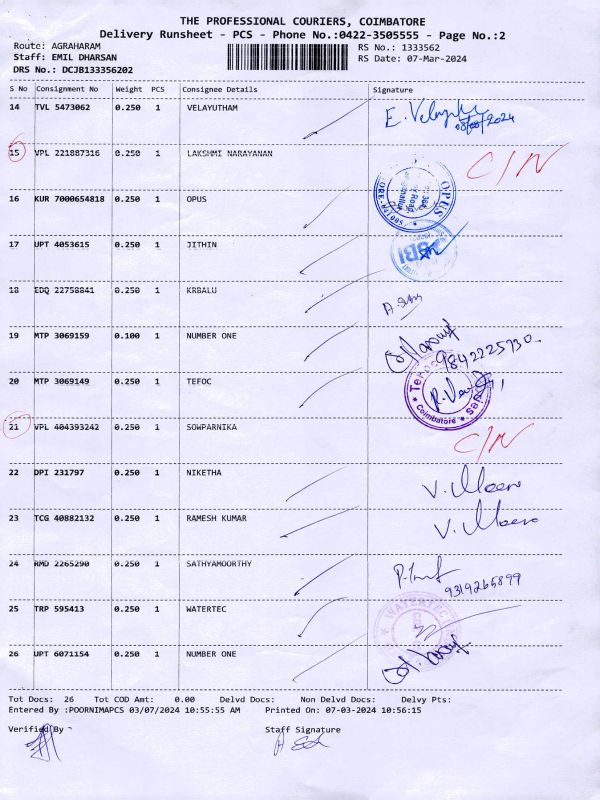 THE PROFESSIONAL COURIERS, COIMBATORE
Delivery Runsheet - PCS - Phone No.:0422-3505555 - Page No.:2
Route: AGRAHARAM RS No.: 1333562
Staff: EMIL DHARSAN RS Date: 07-Mar-2024
DRS No.: DCJB133356202
S No Consignment No Weight PCS Consignee Details Signature
14 TVL 5473062 0.250 1 VELAYUTHAM
15 VPL 221887316 0.250 1 LAKSHMI NARAYANAN C/N
16 KUR 7000654818 0.250 1 OPUS
OPUS
17 UPT 4053615 0.250 1 JITHIN
18 EDQ 22758841 0.250 1 KRBALU
19 MTP 3069159 0.100 1 NUMBER ONE
20 MTP 3069149 0.250 1 TEFOC
Coimbatore
21 VPL 404393242 0.250 1 SOWPARNIKA C/N
22 DPI 231797 0.250 1 NIKETHA
23 TCG 40882132 0.250 1 RAMESH KUMAR
24 RMD 2265290 0.250 1 SATHYAMOORTHY
9319265899
25 TRP 595413 0.250 1 WATERTEC
WATERTEC
26 UPT 6071154 0.250 1 NUMBER ONE
Tot Docs: 26 Tot COD Amt: 0.00 Delvd Docs: Non Delvd Docs: Delvy Pts:
Entered By :POORNIMAPCS 03/07/2024 10:55:55 AM Printed On: 07-03-2024 10:56:15
Verified By Staff Signature